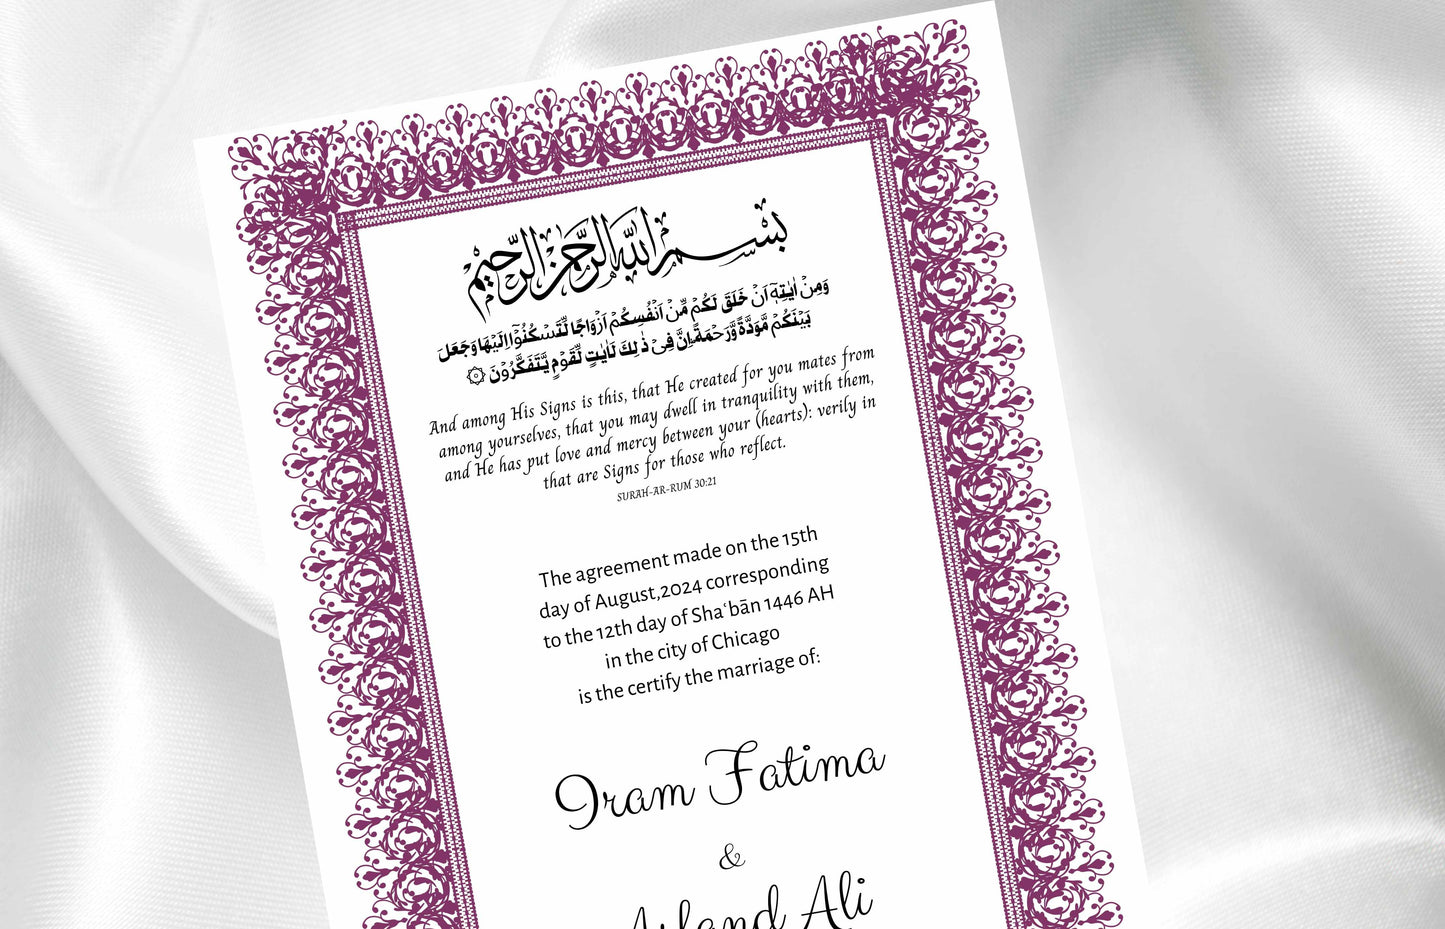 بسم الله الرحمن الرحيم
وَمِنْ اٰيٰتِهٖٓ اَنْ خَلَقَ لَكُمْ مِّنْ اَنْفُسِكُمْ اَزْوَاجًا لِّتَسْكُنُوْٓا اِلَيْهَا وَجَعَلَ
بَيْنَكُمْ مَّوَدَّةً وَّرَحْمَةً ؕ اِنَّ فِىْ ذٰ لِكَ لَاٰيٰتٍ لِّقَوْمٍ يَّتَفَكَّرُوْنَ
And among His Signs is this, that He created for you mates from
among yourselves, that you may dwell in tranquility with them,
and He has put love and mercy between your (hearts): verily in
that are Signs for those who reflect.
SURAH-AR-RUM 30:21
The agreement made on the 15th
day of August,2024 corresponding
to the 12th day of Shaʿbān 1446 AH
in the city of Chicago
is the certify the marriage of:
Iram Fatima
&
Ali